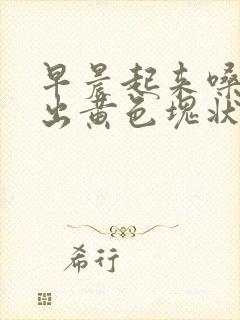 早晨起来嗓
出黄色块状
希行